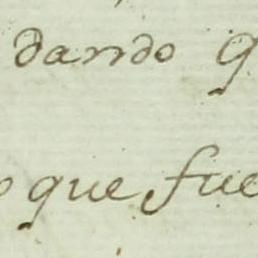 dando q
o que fue